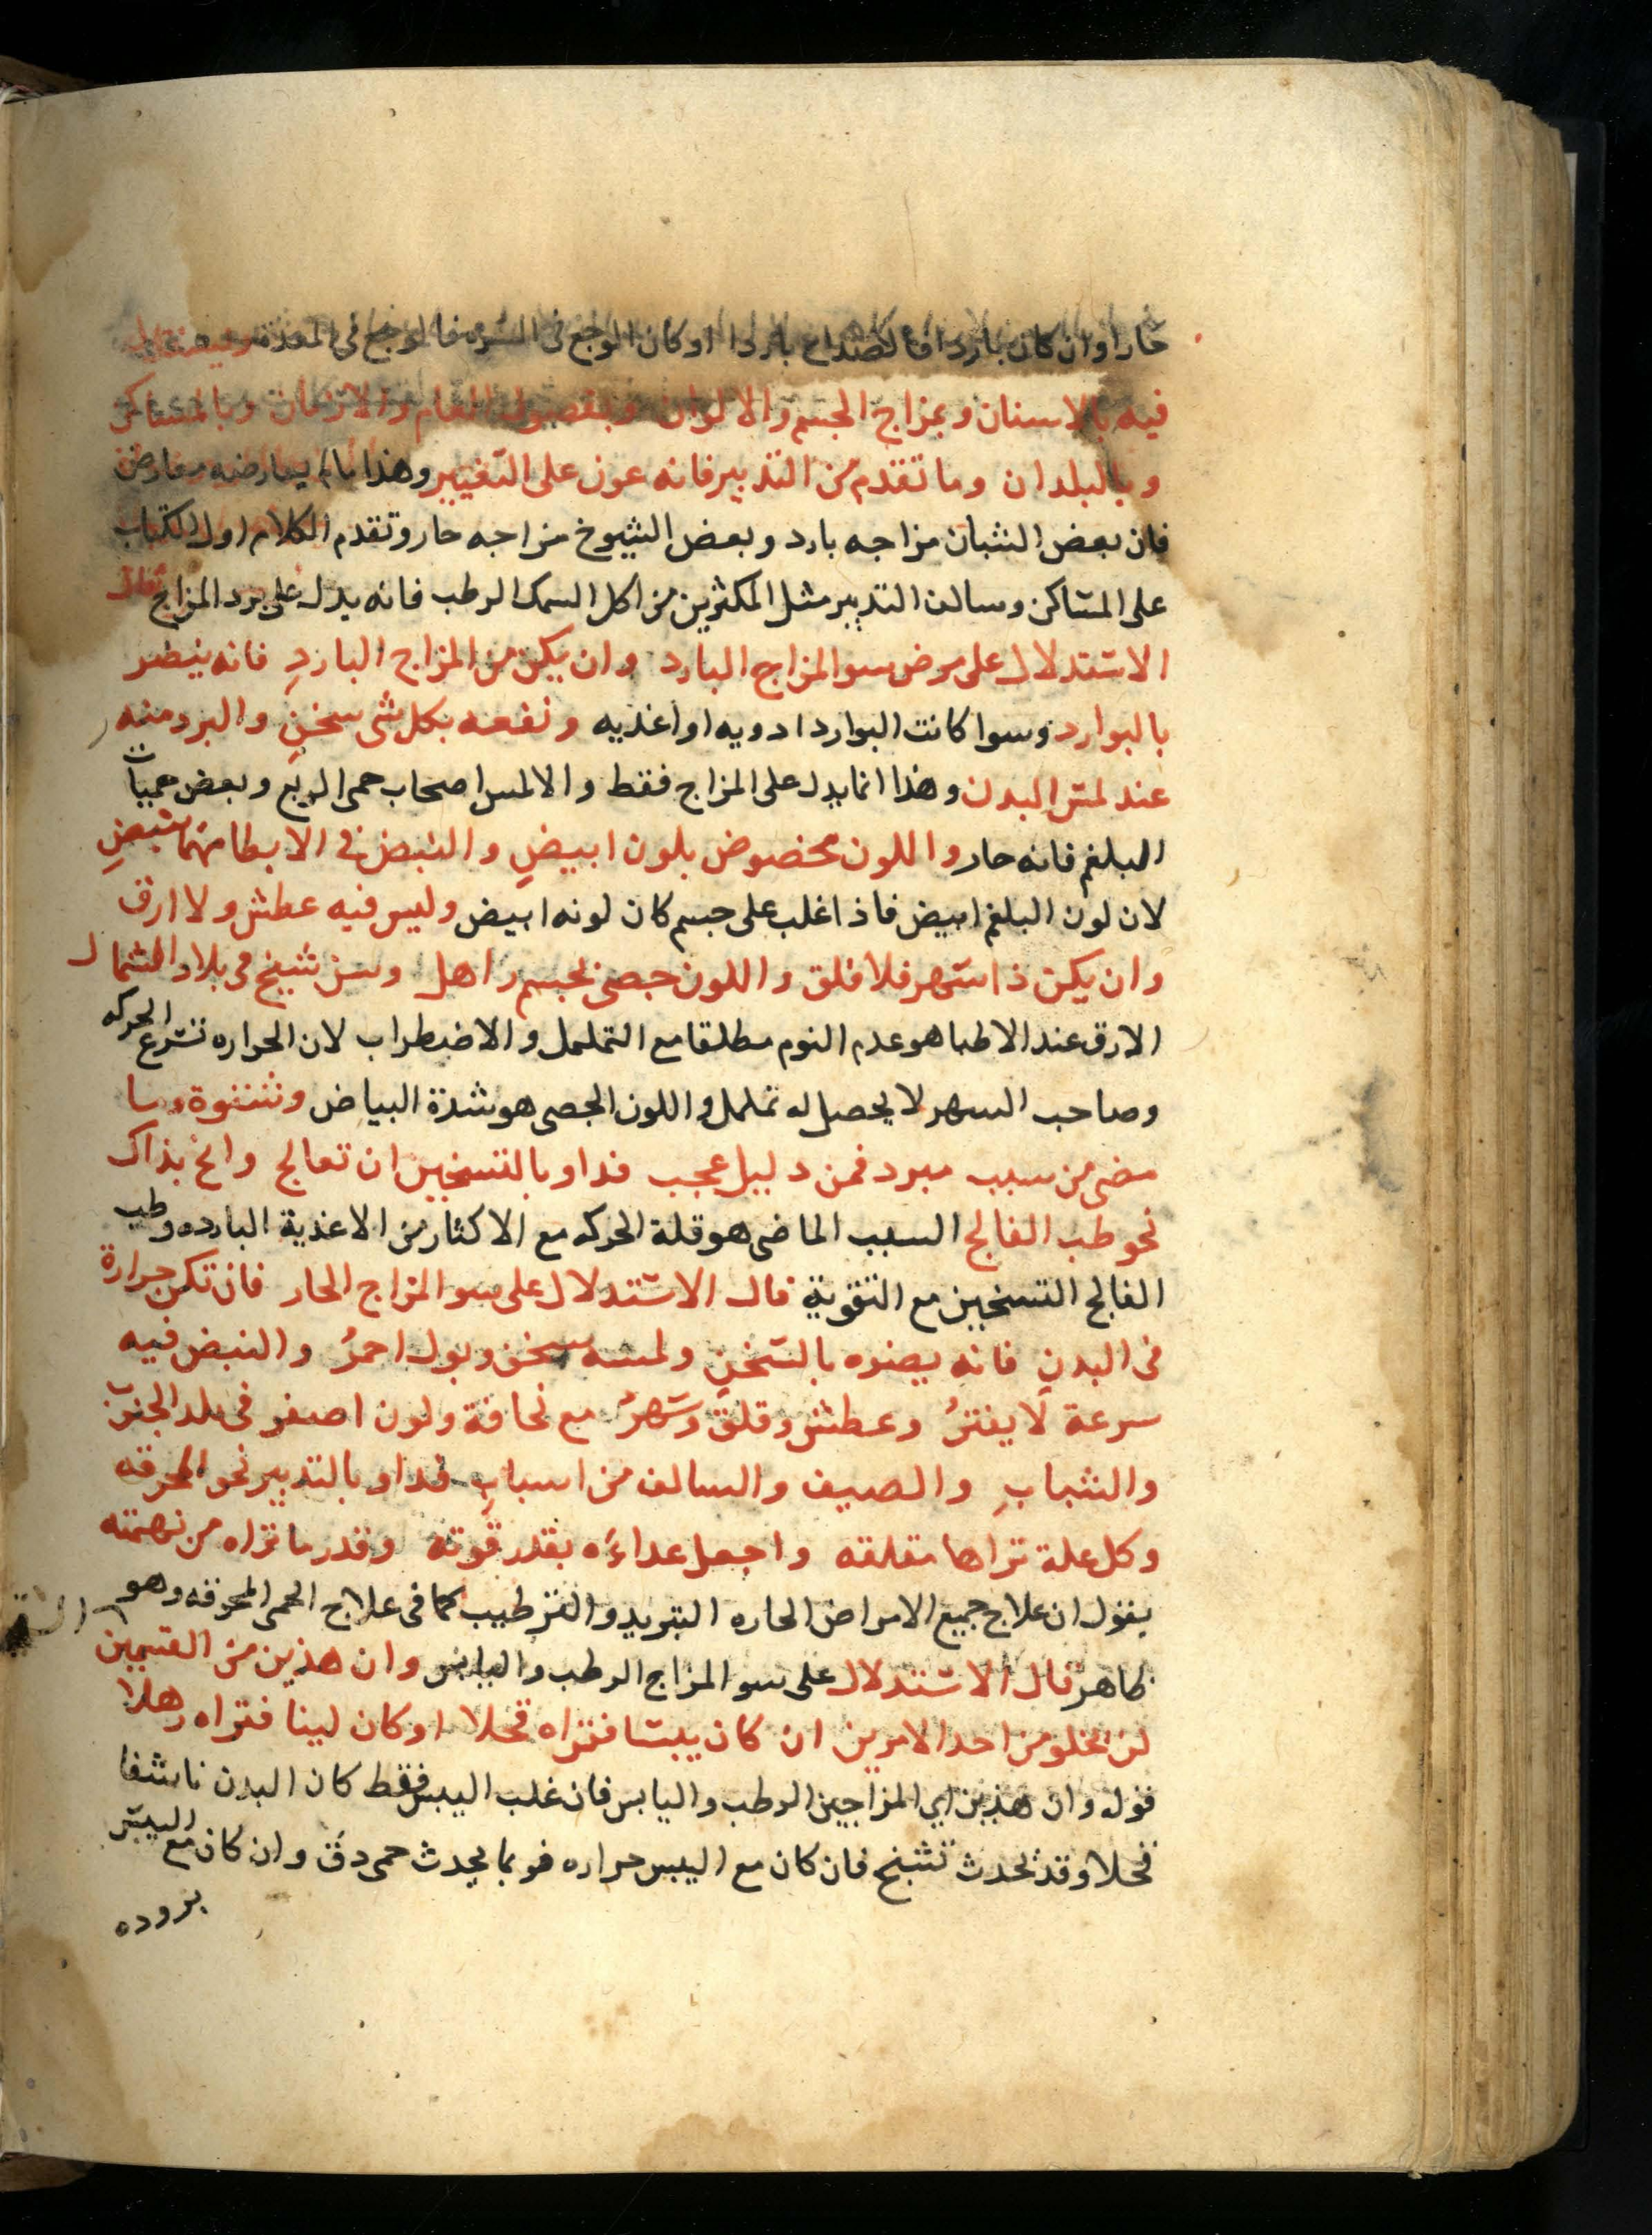 حارا وان كان باردا فالصداع باردا او كان الوجع فى السره فالوجع فى المعدة
فيه بالاسنان وبمزاج الجسم والالوان وبفصول العام والازمان وبالمساكن
وبالبلدان وما تقدم من التدبير فانه عون على التغيير وهذا يعارضه معارض
فان بعض الشبان مزاجه بارد وبعض الشيوخ مزاجه حار وتقدم الكلام اول الكتاب
على المساكن وسالف التدبير مثل المكثرين من اكل السمك الرطب فانه يدل على برد المزاج قال
الاستدلال على مرض سو المزاج البارد وان يكن من المزاج الباردِ فانه ينضر
بالبوارد وسوا كانت البوارد ادويه او اغذيه ونفعه بكل شى سخنٍ والبرد منه
عند لمس البدن وهذا انما يدل على المزاج فقط والا لمس اصحاب حمى الربع وبعض حميات
البلغم فانه حار واللون مخصوص بلون ابيضِ والنبض فى الابطا منبضِ
لان لون البلغم ابيض فاذا غلب على جسم كان لونه ابيض وليس فيه عطش ولا ارق
وان يكن ذا سهر فلا قلق واللون جصى بجسم راهل وسن شيخ فى بلاد الشمال
الارق عند الاطبا هو عدم النوم مطلقا مع التململ والاضطراب لان الحراره تسرع الحركه
وصاحب السهر لا يحصل له تململ واللون الجصى هو شدة البياض وشتوة وما
مضى من سبب مبرد فمن دليل عجب فداو بالتسخين ان تعالج وانح بذاك
نحو طب الفالج السبب الماضى هو قلة الحركه مع الاكثار من الاغذية البارده وطب
الفالج التسخين مع التقوية قال الاستدلال على سو المزاج الحار فان تكن حرارة
فى البدنِ فانه يضره بالسخنِ ولمسه سخن وبول احمرُ والنبض فيه
سرعة لا يفترُ وعطش وقلق وسهرُ مع نحافة ولون اصفر فى بلد الجنوب
والشبابِ والصيف والسالف من اسبابِ فداو بالتدبير نحو المحرقه
وكل علة تراها مقلقه واجعل غداءه بقدر قوته وقدر ما تراه من نهمته
يقول ان علاج جميع الامراض الحاره التبريد والترطيب كما فى علاج الحمى المحرقه وهو
ظاهر قال الاستدلال على سو المزاج الرطب واليابس وان هذين من القسمين
لن يخلو من احد الامرين ان كان يبسا فتراه قحلا او كان لينا فتراه رهلا
قوله وان هذين اي المزاجين الرطب واليابس فان غلب اليبس فقط كان البدن ناشفا
قحلا وقد يحدث تشنج فان كان مع اليبس حراره فربما يحدث حمى دق وان كان مع اليبس
بروده